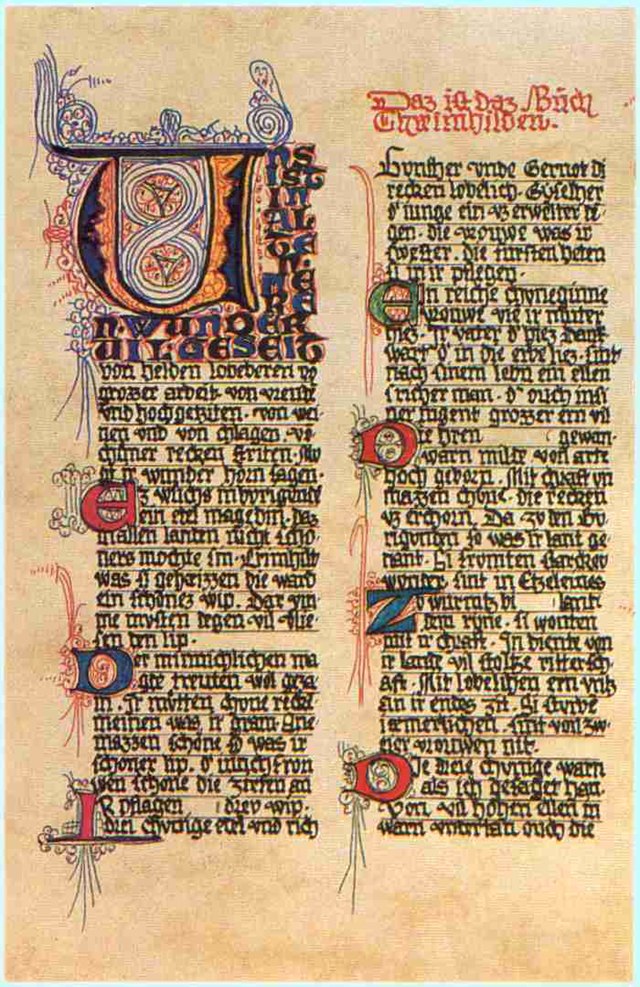 UNS
IST
IN
AL
TE
N.
MÆ
RE
N. WUNDER
UIL GESEIT
von helden lobeberen vō
grozzer arbeit. von vreude
vnd hochgeziten. von wei
nen vnd von chlagen. vō
chuner recken striten. Mv
gt ir wunder horn sagen.
Ez wuchs in byrigunde
ein etel magedin. daz
in allen landen nicht scho
ners mochte sin. Crimhilt
was si geheizzen die ward
ein schonez wip. Dar vm
me mysten degen vil vlie
sen den lip.
Der minnichlichen ma
gde treuten wol geza
m. Ir mvtten chone recke
neinen was ir gram. Ane
mazzen schone so was ir
schoner lip. d' iunchfron
wen schone die zireten an
pflagen drey wip.
Ir
drei chunige etel vnd rich
Daz ist daz Buch
Chreimhilden.
Gunther vnde Gernot di
recken lobelich. Gyselher
d' iunge ein vz erwelter de
gen. die vrouwe was ir
swester. die fursten heten
si in ir pflegen.
Ein reiche chuneginne
vrouwe vte ir muter
hiez. Ir vater d' hiez Dank
wart d' in die erbe liez. sint
nach sinem lebn ein ellen
sricher man. d' ouch in si
ner iugent grozzer ern vil
gewan.
Die hren
warn milde von arte
hoch geborn. Mit chraft vn
mazzen chone. die recken
vz erchorn. Da zv den Bu
rigunden so was ir lant ge
nant. Si frumten starckev
wunter. sint in Etzeleines lant.
Ze wurmtz bi
dem ryne. si wonten
mit ir chraft. In diente von
ir lande vil stoltze rittersch
aft. Mit lobelichen ern vntz
an ir endes zit. Si sturbe
iæmerlichen. sint von zw
eier vrouwen nit.
Die dreie chunige warn
als ich gesaget han.
Von vil hohen ellen in
warn vntertan ouch die